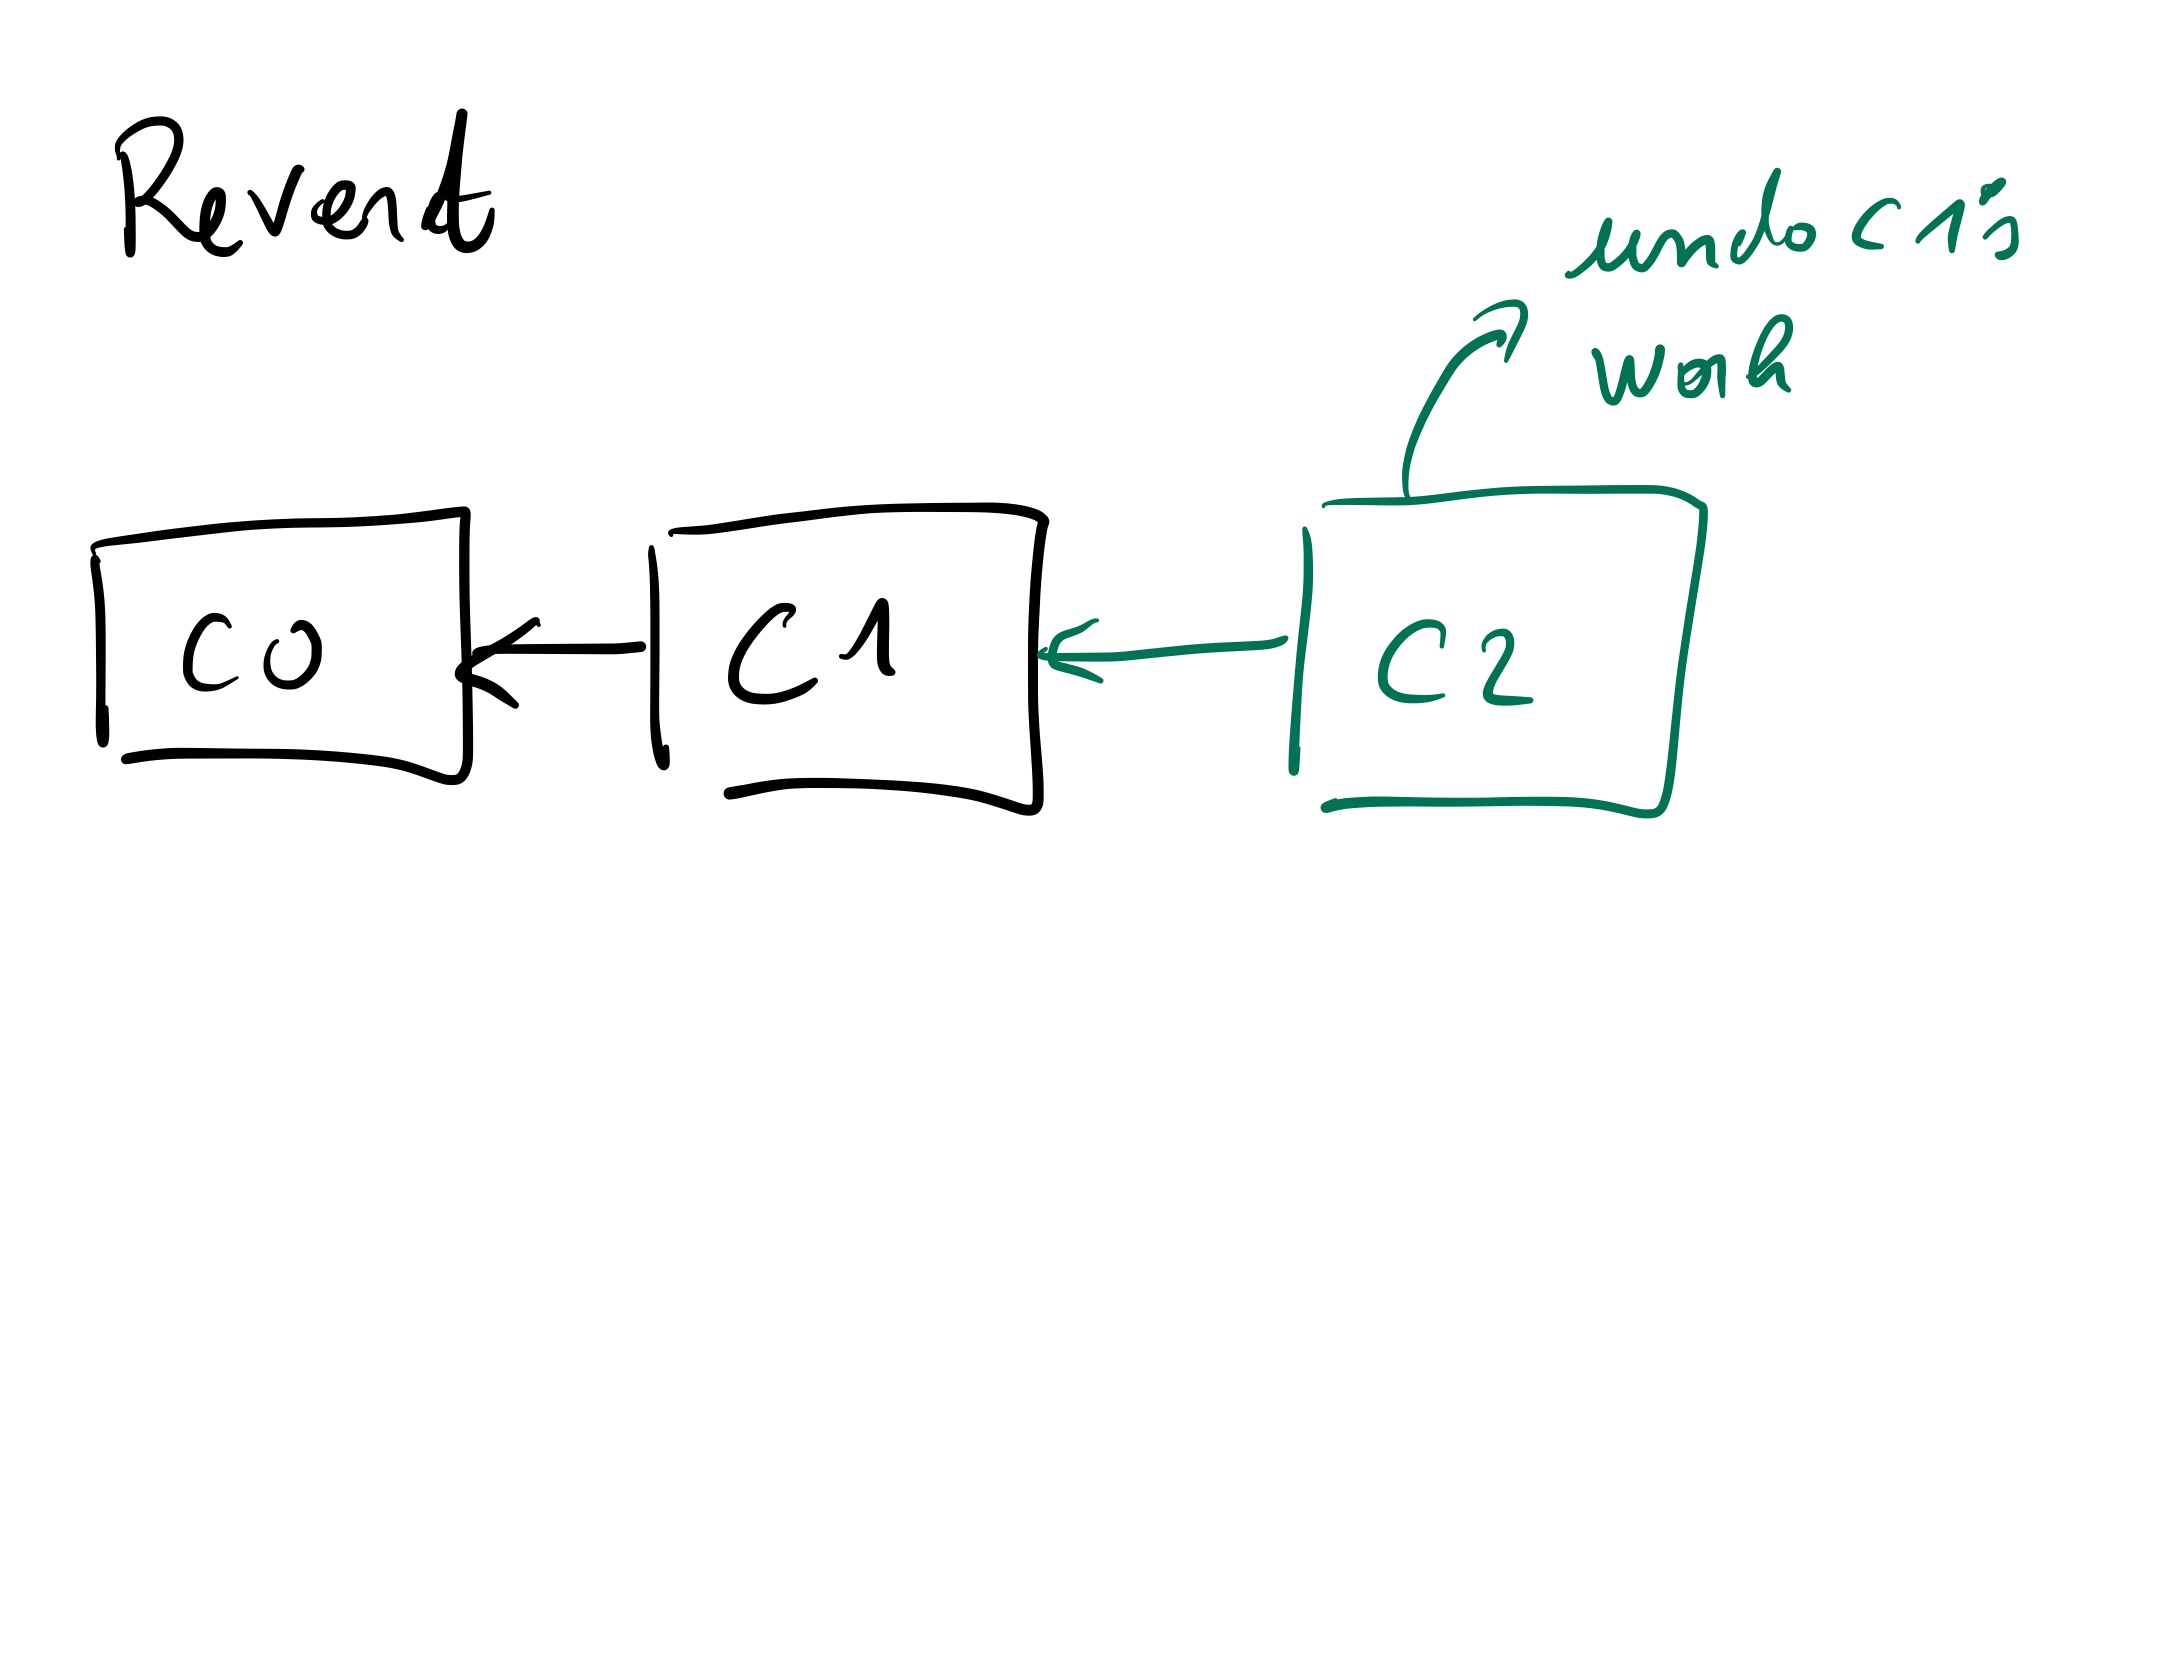 Revert
undo C1's
work
C0
C1
C2